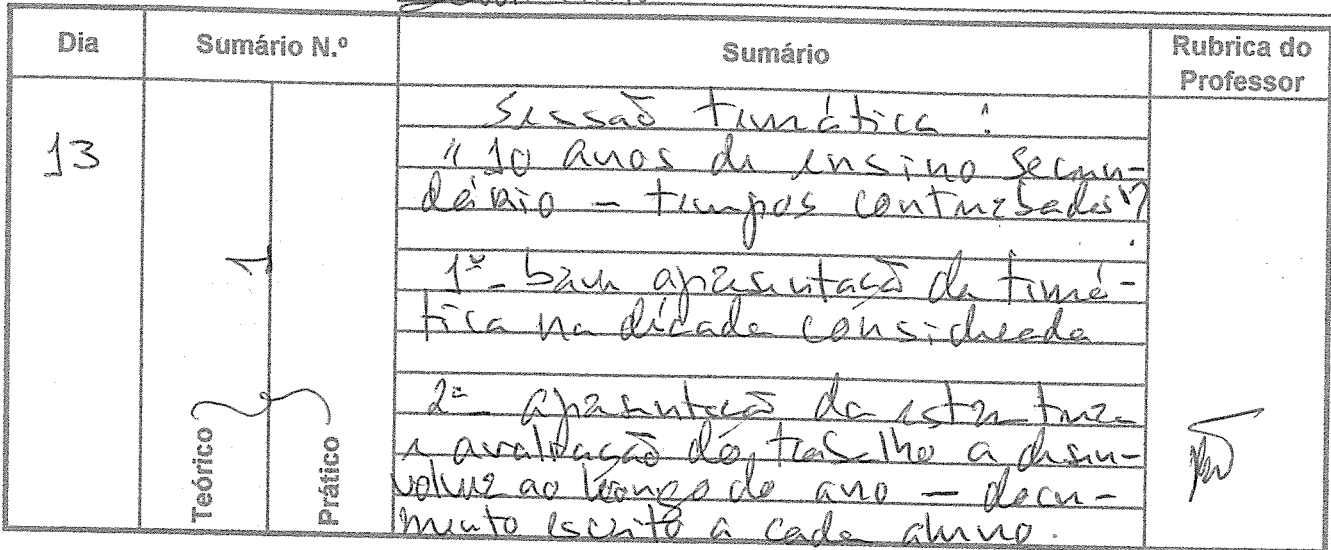 Dia Sumário N.º Sumário Rubrica do Professor
13
1
Teórico
Prático
Sessão temática:
"10 anos de ensino secun-
dário - tempos conturbados"
1º - breve apresentação da temá-
tica na década considerada
2º apresentação da estrutura
e avaliação do trabalho a desen-
volver ao longo do ano - docu-
mento escrito a cada aluno.